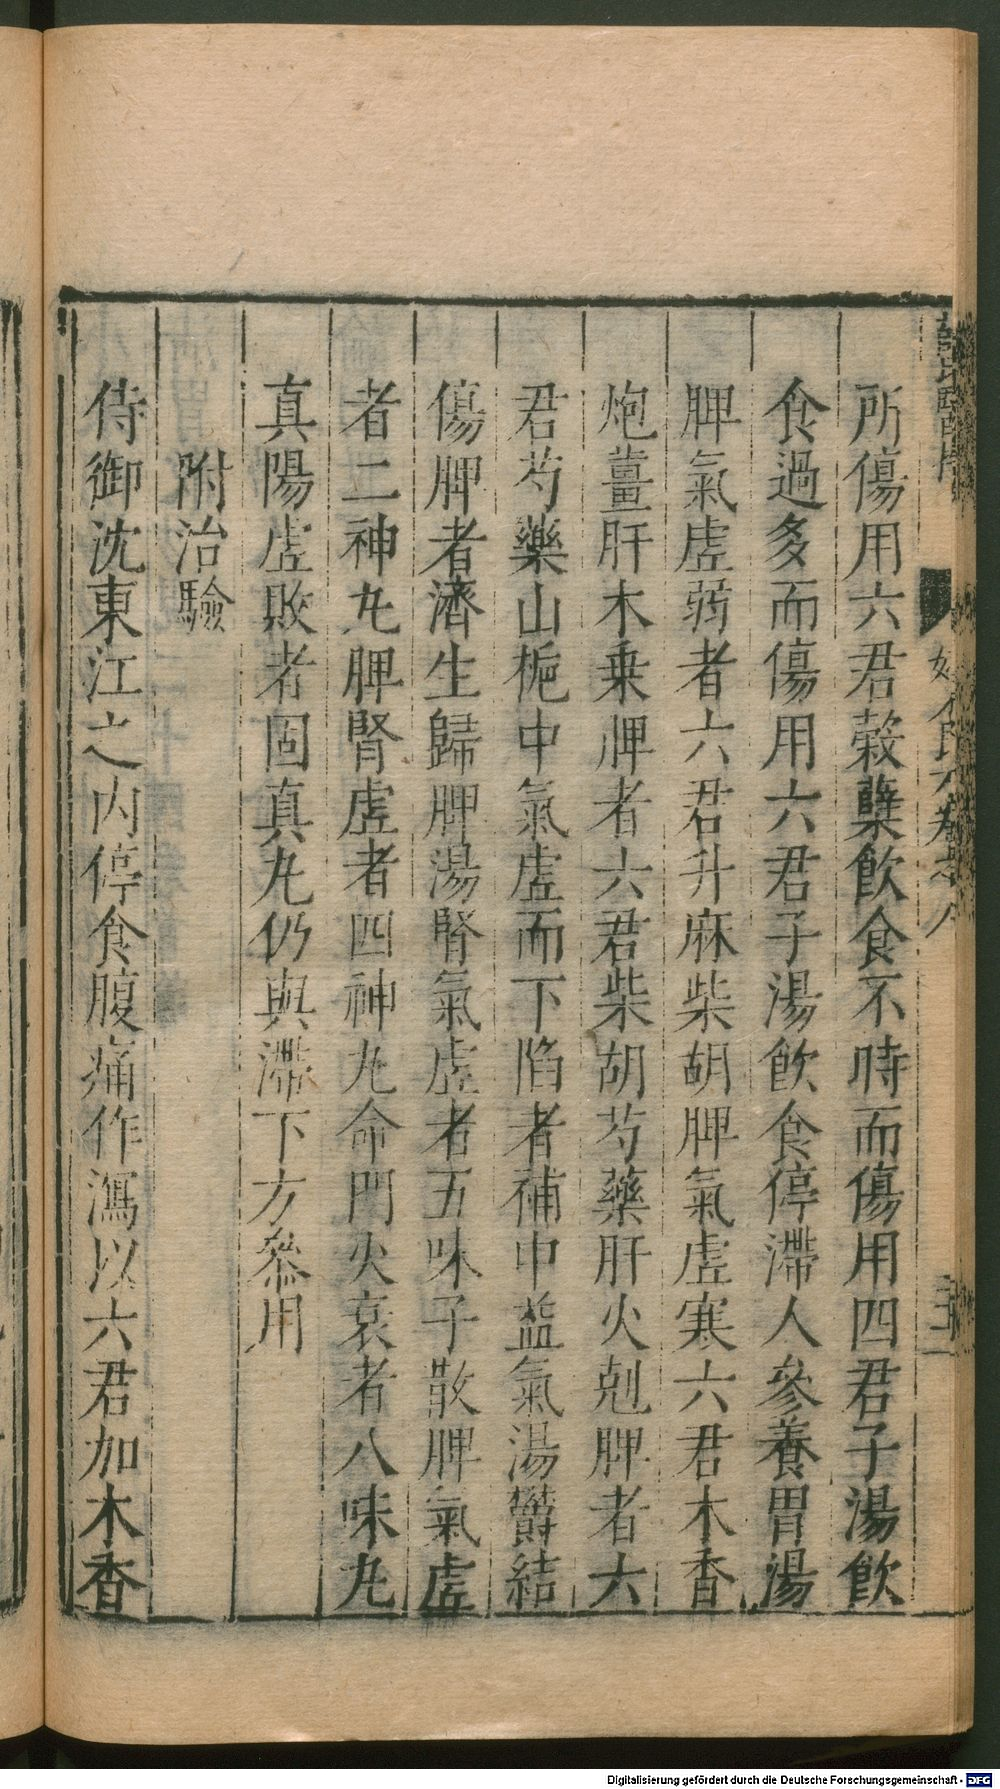 所傷用六君榖糵飲食不時而傷用四君子湯飲
食過多而傷用六君子湯飲食停滯人參養胃湯
脾氣虛弱者六君升麻柴胡脾氣虛寒六君木香
炮薑肝木乗脾者六君柴胡芍藥肝火剋脾者六
君芍藥山梔中氣虛而下陷者補中益氣湯欝結
傷脾者濟生歸脾湯腎氣虛者五味子散脾氣虛
者二神丸脾腎虛者四神丸命門火衰者八味丸
真陽虛敗者固真丸仍與滯下方叅用
附治驗
侍御沈東江之内停食腹痛作瀉以六君加木香
Digitalisierung gefördert durch die Deutsche Forschungsgemeinschaft - DFG